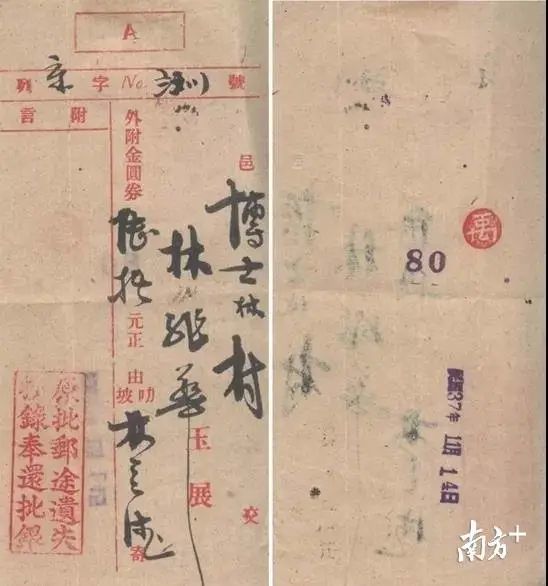 A
列 字 No. 號
邑 博士林村 交
林維華 玉展
外附金圓券 陸拾 元正 由叻坡 林 寄
附言
原批郵途遺失
錄奉還批銀
80
37年 11月 14日
南方+